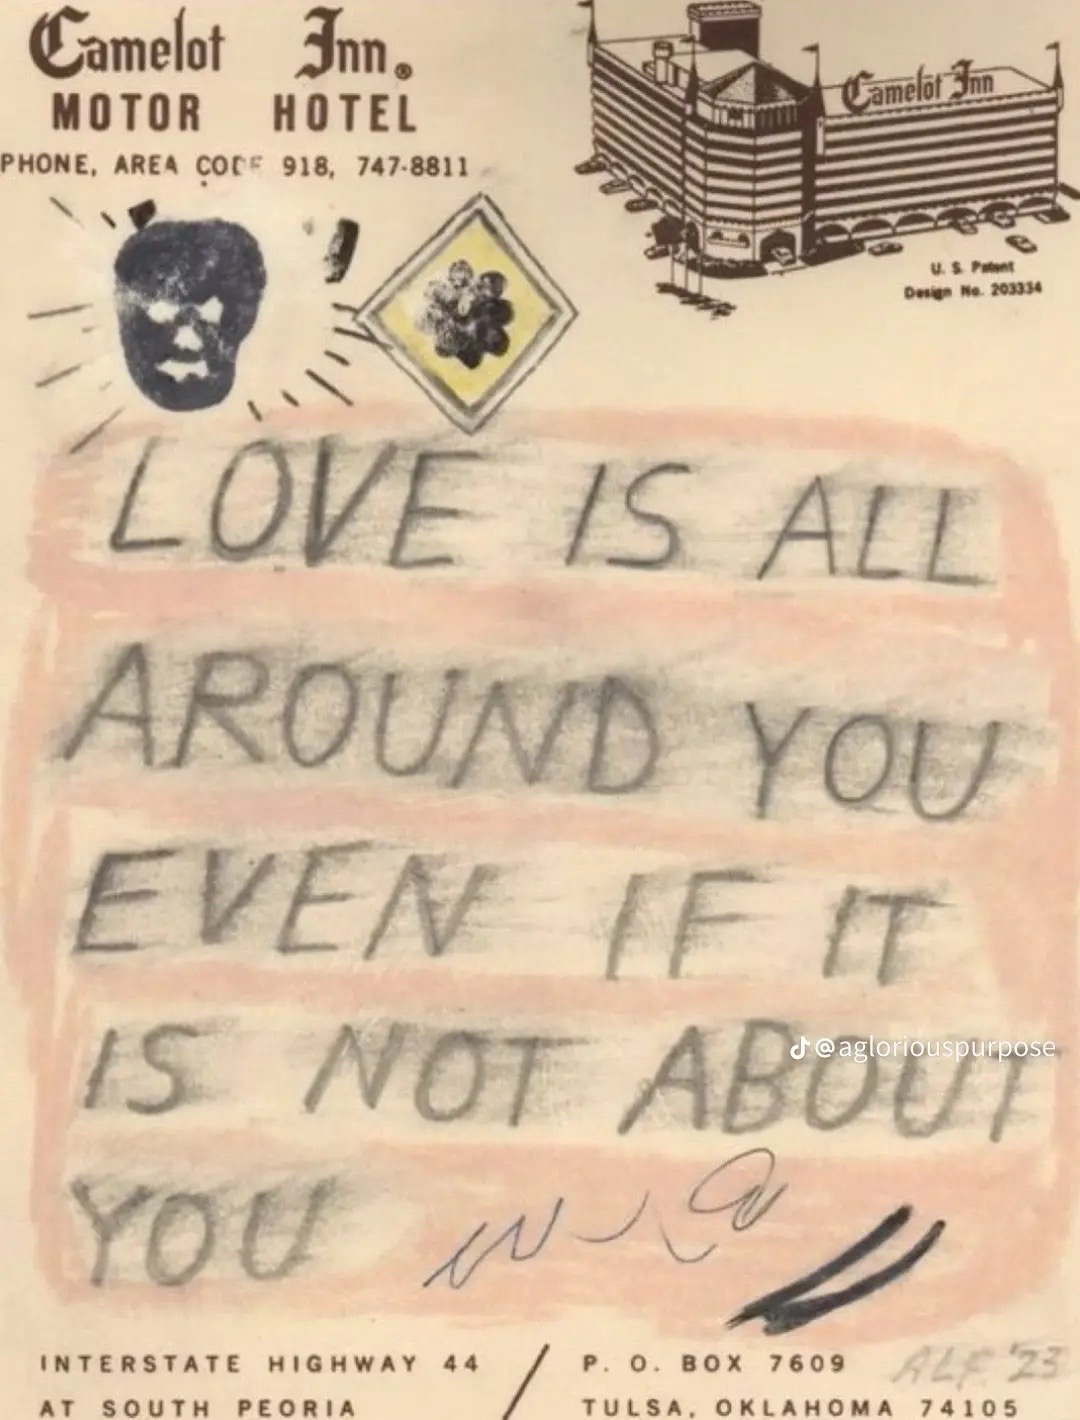 Camelot Inn®
MOTOR HOTEL
PHONE, AREA CODE 918, 747-8811
Camelot Inn
U. S. Patent
Design No. 203334
LOVE IS ALL
AROUND YOU
EVEN IF IT
IS NOT ABOUT
@agloriouspurpose
YOU
INTERSTATE HIGHWAY 44
AT SOUTH PEORIA
P. O. BOX 7609
TULSA, OKLAHOMA 74105
ALF '23